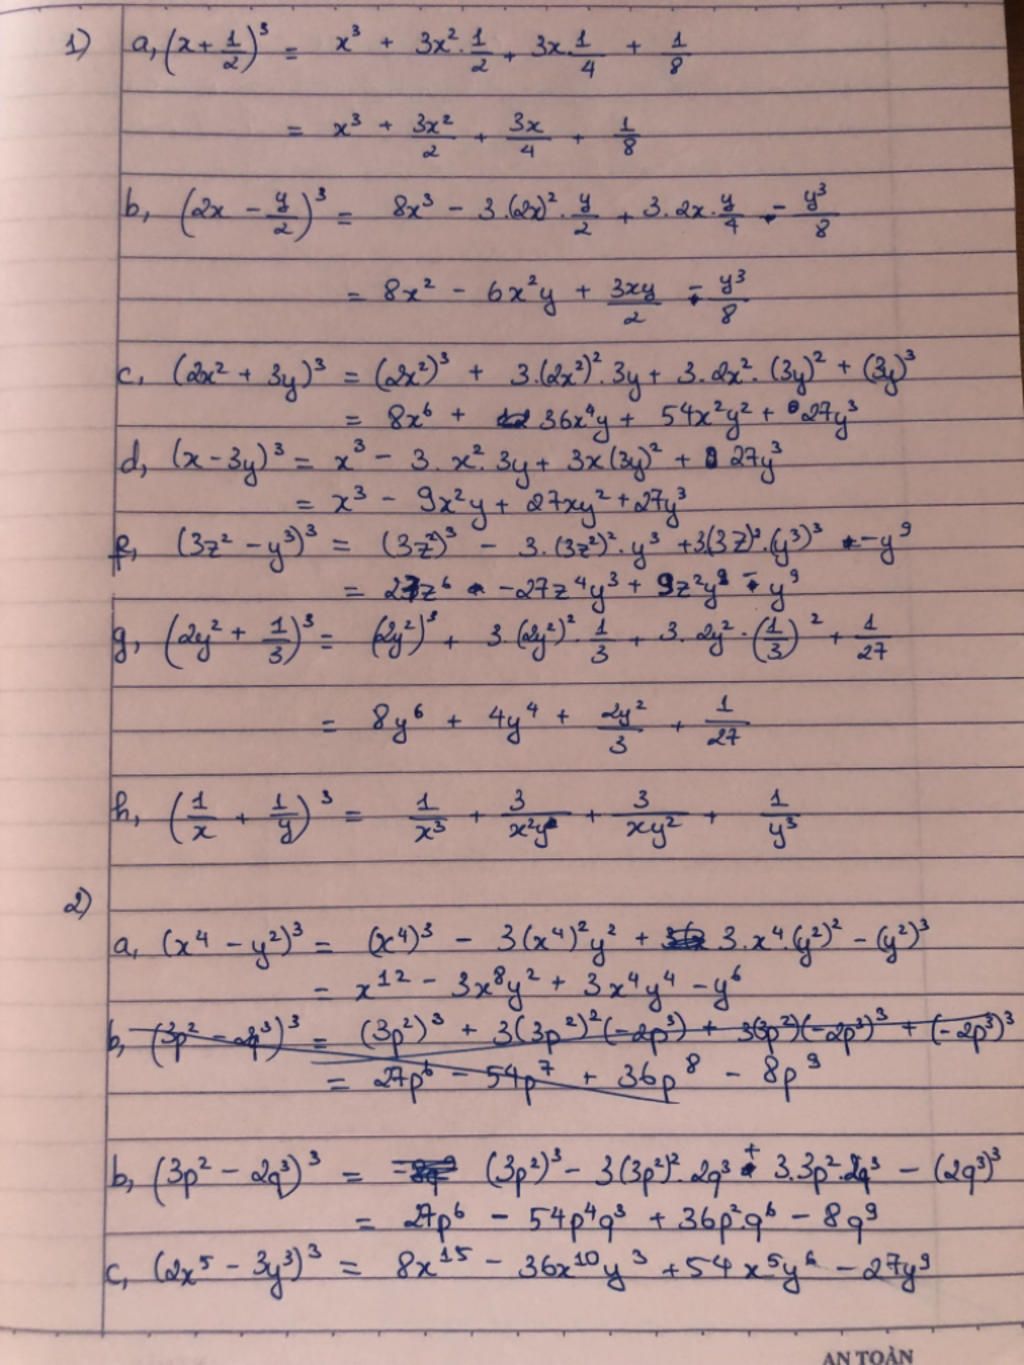 1) a, (x + 1/2)³ = x³ + 3x² · 1/2 + 3x · 1/4 + 1/8
= x³ + 3x²/2 + 3x/4 + 1/8
b, (2x - y/2)³ = 8x³ - 3 · (2x)² · y/2 + 3 · 2x · y/4 - y³/8
= 8x² - 6x²y + 3xy/2 - y³/8
c, (2x² + 3y)³ = (2x²)³ + 3 · (2x²)² · 3y + 3 · 2x² · (3y)² + (3y)³
= 8x⁶ + 36x⁴y + 54x²y² + 27y³
d, (x - 3y)³ = x³ - 3 · x² · 3y + 3x(3y)² + 27y³
= x³ - 9x²y + 27xy² + 27y³
f, (3z² - y³)³ = (3z²)³ - 3 · (3z²)² · y³ + 3(3z)² · (y³)³ - y⁹
= 27z⁶ - 27z⁴y³ + 9z²y⁹ - y⁹
g, (2y² + 1/3)³ = (2y²)³ + 3 · (2y²)² · 1/3 + 3 · 2y² · (1/3)² + 1/27
= 8y⁶ + 4y⁴ + 2y²/3 + 1/27
h, (1/x + 1/y)³ = 1/x³ + 3/x²y + 3/xy² + 1/y³
2)
a, (x⁴ - y²)³ = (x⁴)³ - 3(x⁴)²y² + 3 · x⁴ · (y²)² - (y²)³
= x¹² - 3x⁸y² + 3x⁴y⁴ - y⁶
b, (3p² - 2q³)³ = (3p²)³ + 3(3p²)²(-2p³) + 3(3p²)(-2p³)³ + (-2p³)³
= 27p⁶ - 54p⁷ + 36p⁸ - 8p⁹
b, (3p² - 2q³)³ = (3p²)³ - 3(3p²)² · 2q³ + 3 · 3p² · 2q³ - (2q³)³
= 27p⁶ - 54p⁴q³ + 36p² · q⁶ - 8q⁹
c, (2x⁵ - 3y³)³ = 8x¹⁵ - 36x¹⁰y³ + 54x⁵y⁶ - 27y⁹
AN TOÀN